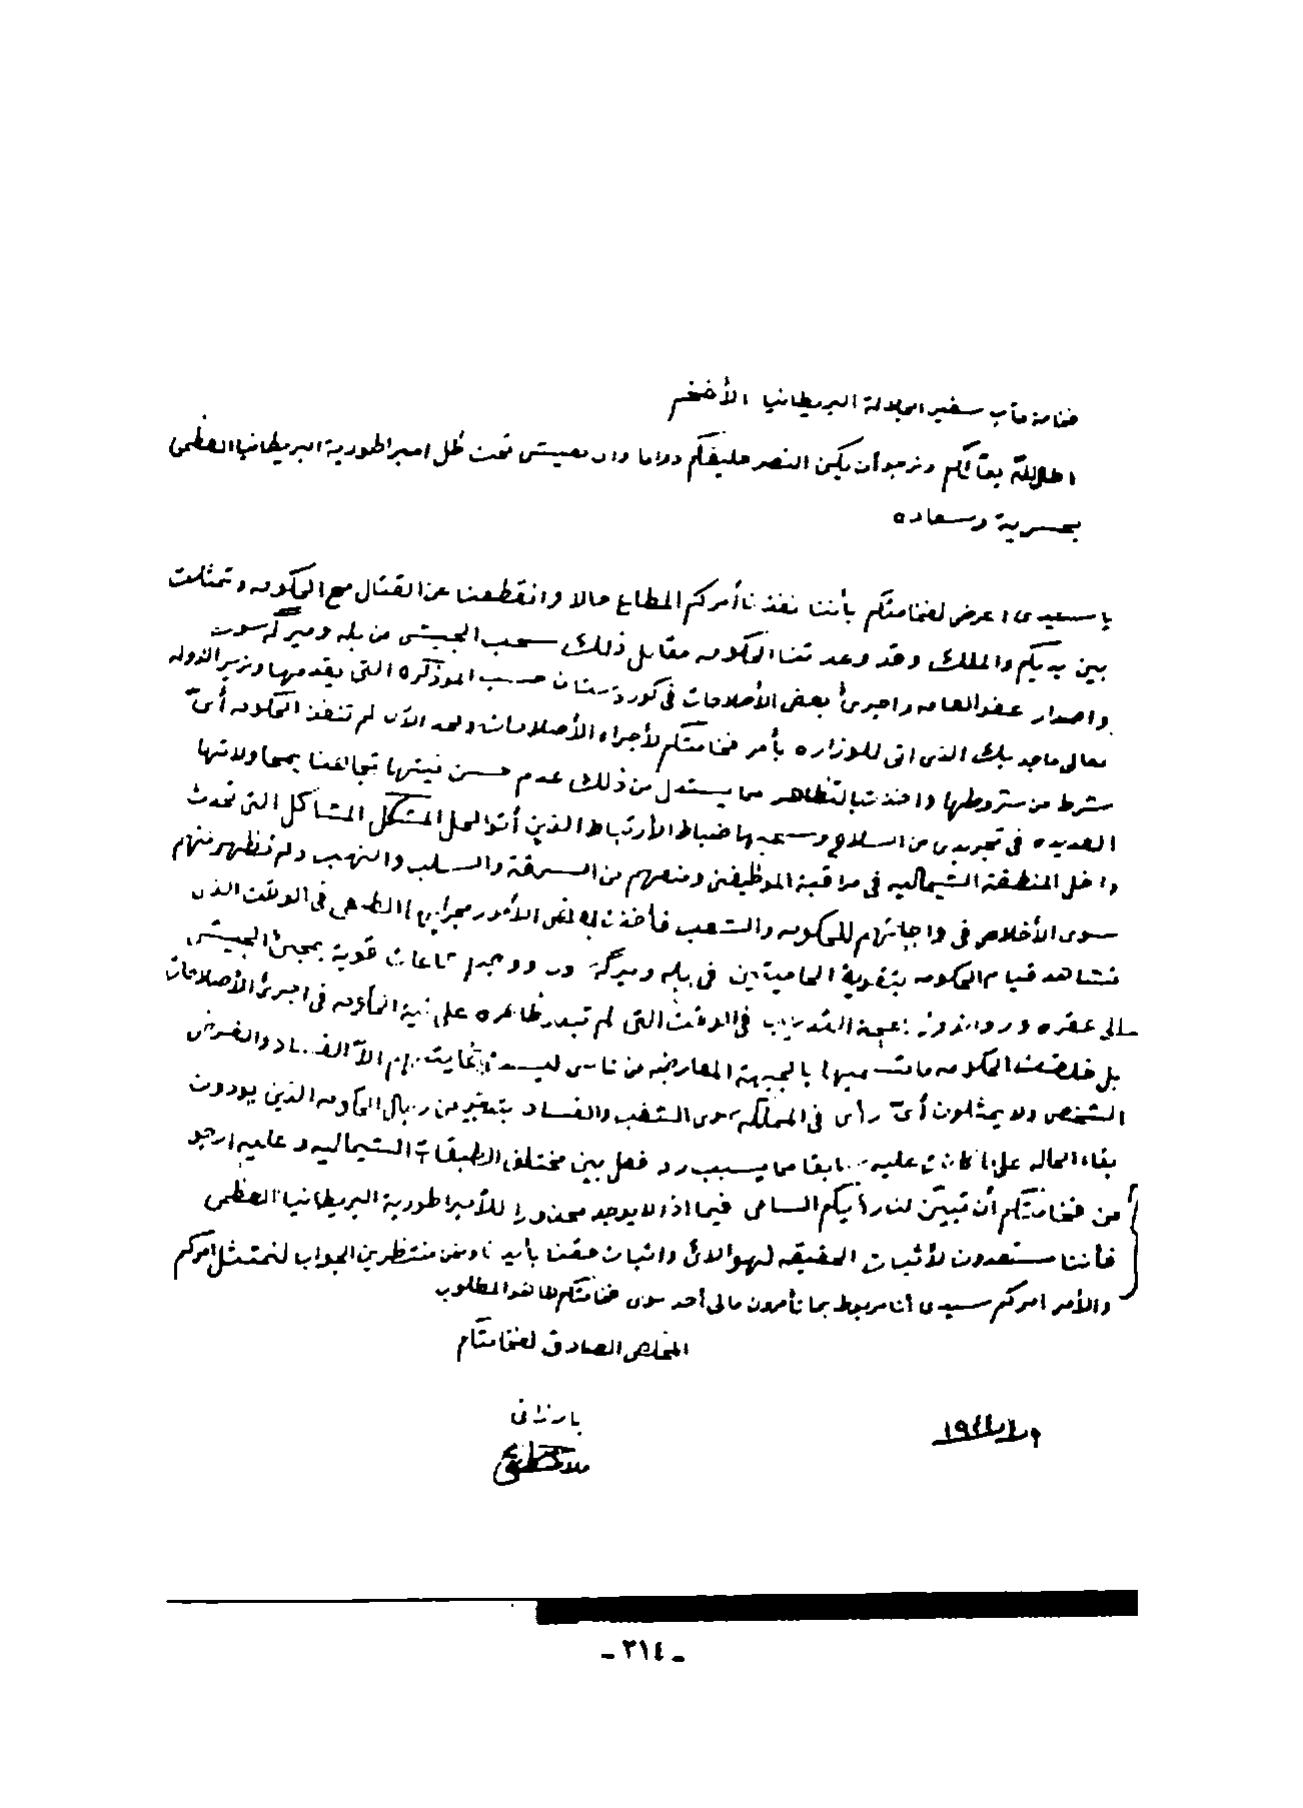 فخامة مآب سفير الجلالة البريطانيا الأفخم
اطال الله بقائكم ونرجو أن يكن النصر حليفكم دواما وان نعيش تحت ظل امبراطورية البريطانيا العظمى
بحرية وسعاده
ياسيدى اعرض لفخامتكم بأننا نفذنا أمركم المطاع حالا وانقطعنا عن القتال مع الحكومه وتمثلت
بين يديكم والملك وقد وعدتنا الحكومه مقابل ذلك سحب الجيش من بله وميرگه سور
واصدار عفو العام واجرئ بعض الأصلاحات فى كوردستان حسب الموذكره التى يقدمها وزير الدوله
معالى ماجد بك الذى اتى للوزاره بأمر فخامتكم لأجراء الأصلاحات ولحد الآن لم تنفذ الحكومه أىّ
شرط من شروطها واخذت بالتظاهر مما يستدل من ذلك عدم حسن نيتها تجاهنا بمحاولاتها
العديده فى تجريدى من السلاح وسحبها ضباط الأرتباط الذين أتوا لحل المشاكل التى تحدث
داخل المنطقة الشماليه فى مراقبة الموظفين ومنعهم من السرقة والسلب والنهب ولم نظهر منهم
سوى الأخلاص فى واجباتهم للحكومه والشعب فأخذت الأمور مجراها فى الوقت الذى
نشاهد قيام الحكومه بتقوية الحاميتين فى بله وميرگه سور ووجود اشاعات قوية بمجئ الجيش
الى عقره وروانذوز بحجة التدريب فى الوقت التى لم تبدر ظاهره على نية الحكومه فى اجرئ الأصلاحات
بل خلقت الحكومه ما تسميها بالجبهة المعارضه من ناس ليست غايتهم الآ الفساد والغرض
الشخصى ولا يمثلون أىّ رأى فى المملكه سوى الشغب والفساد بتدبير من رجال الحكومه الذين يودون
بقاء الحاله على ما كانت عليه سابقا مما يسبب رد فعل بين مختلف الطبقات الشماليه وعليه ارجو
من فخامتكم أن تبيّن لنا رأيكم السامى فيما اذا لا يوجد محذورا للأمبراطورية البريطانيا العظمى
فأننا مستعدون لأثبات الحقيقه واثبات حقنا بأيدينا ونحن منتظرين الجواب لنمتثل أمركم
والأمر امركم سيدى أنا مربوط بما تأمرون مالى أحد سوى فخامتكم المطلوب
المخلص الصادق لفخامتكم
بارزانى
ملا مصطفى
- ٣١٤ -